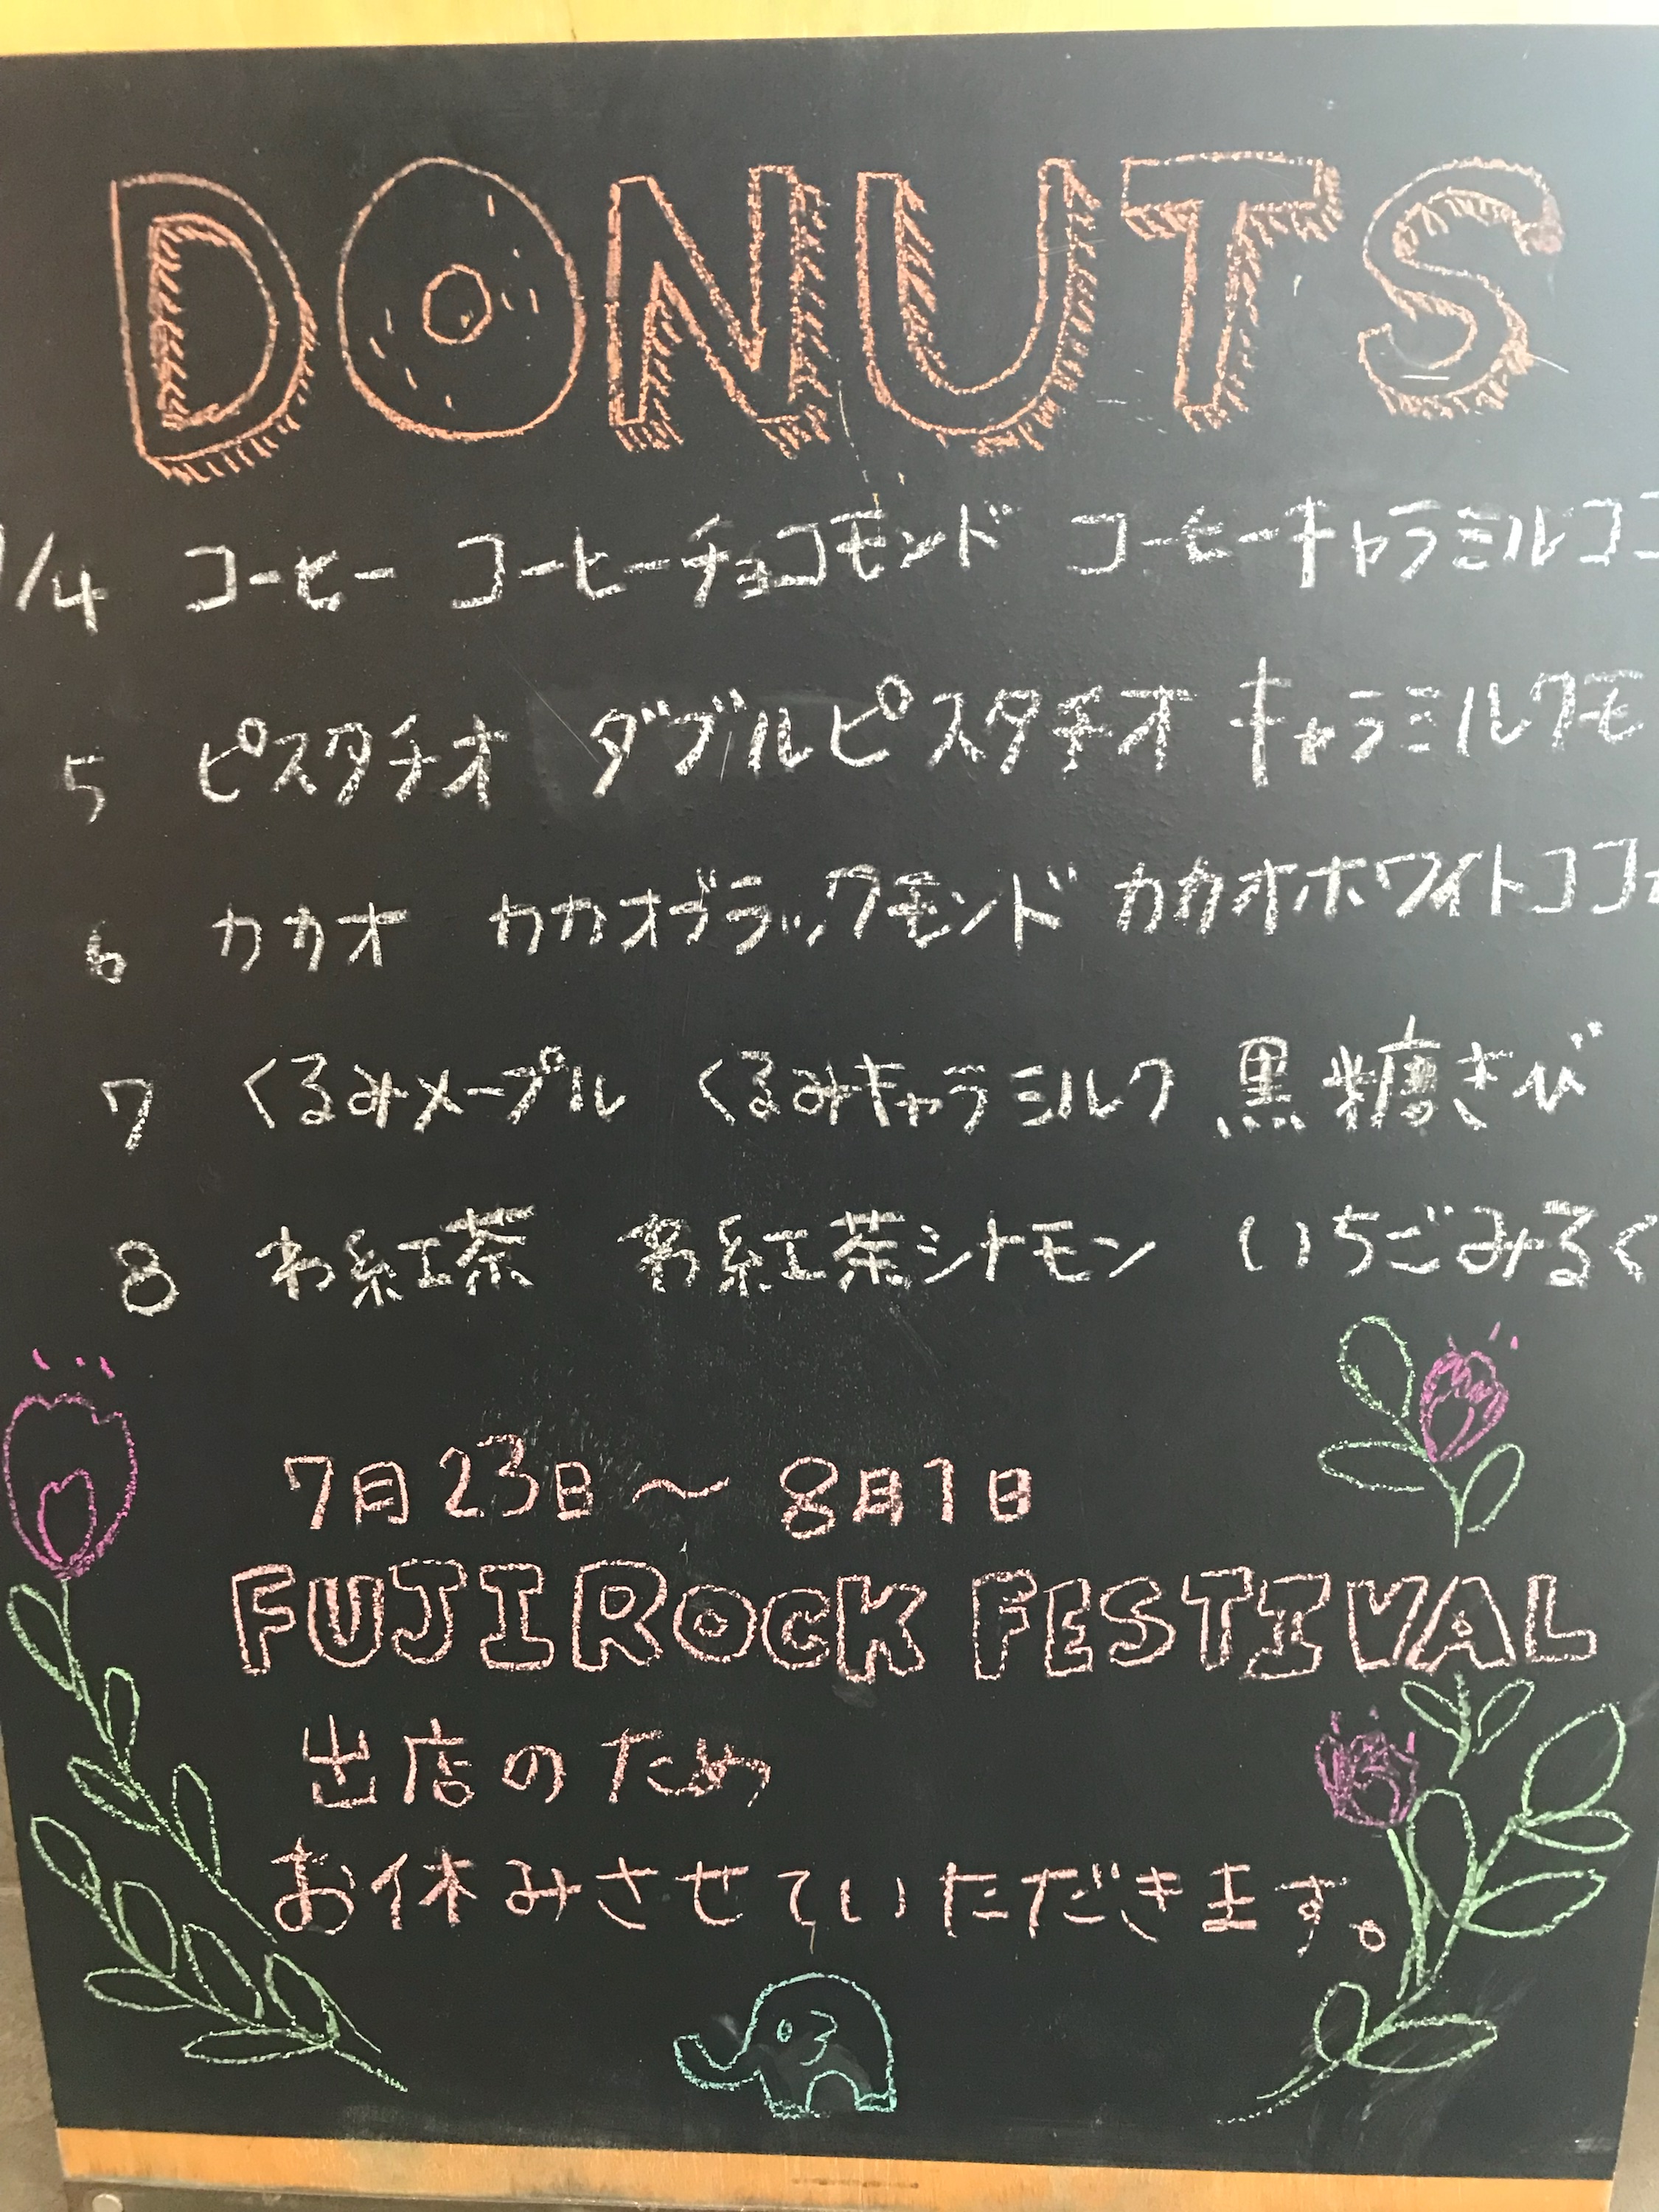 DONUTS
/4 コーヒー コーヒーチョコモンド コーヒーキャラミルココ
5 ピスタチオ ダブルピスタチオ キャラミルクモ
6 カカオ カカオブラックモンド カカオホワイトココ
7 くるみメープル くるみキャラミルク 黒糖きび
8 わ紅茶 わ紅茶シナモン いちごみるく
7月23日〜8月1日
FUJI ROCK FESTIVAL
出店のため
お休みさせていただきます。